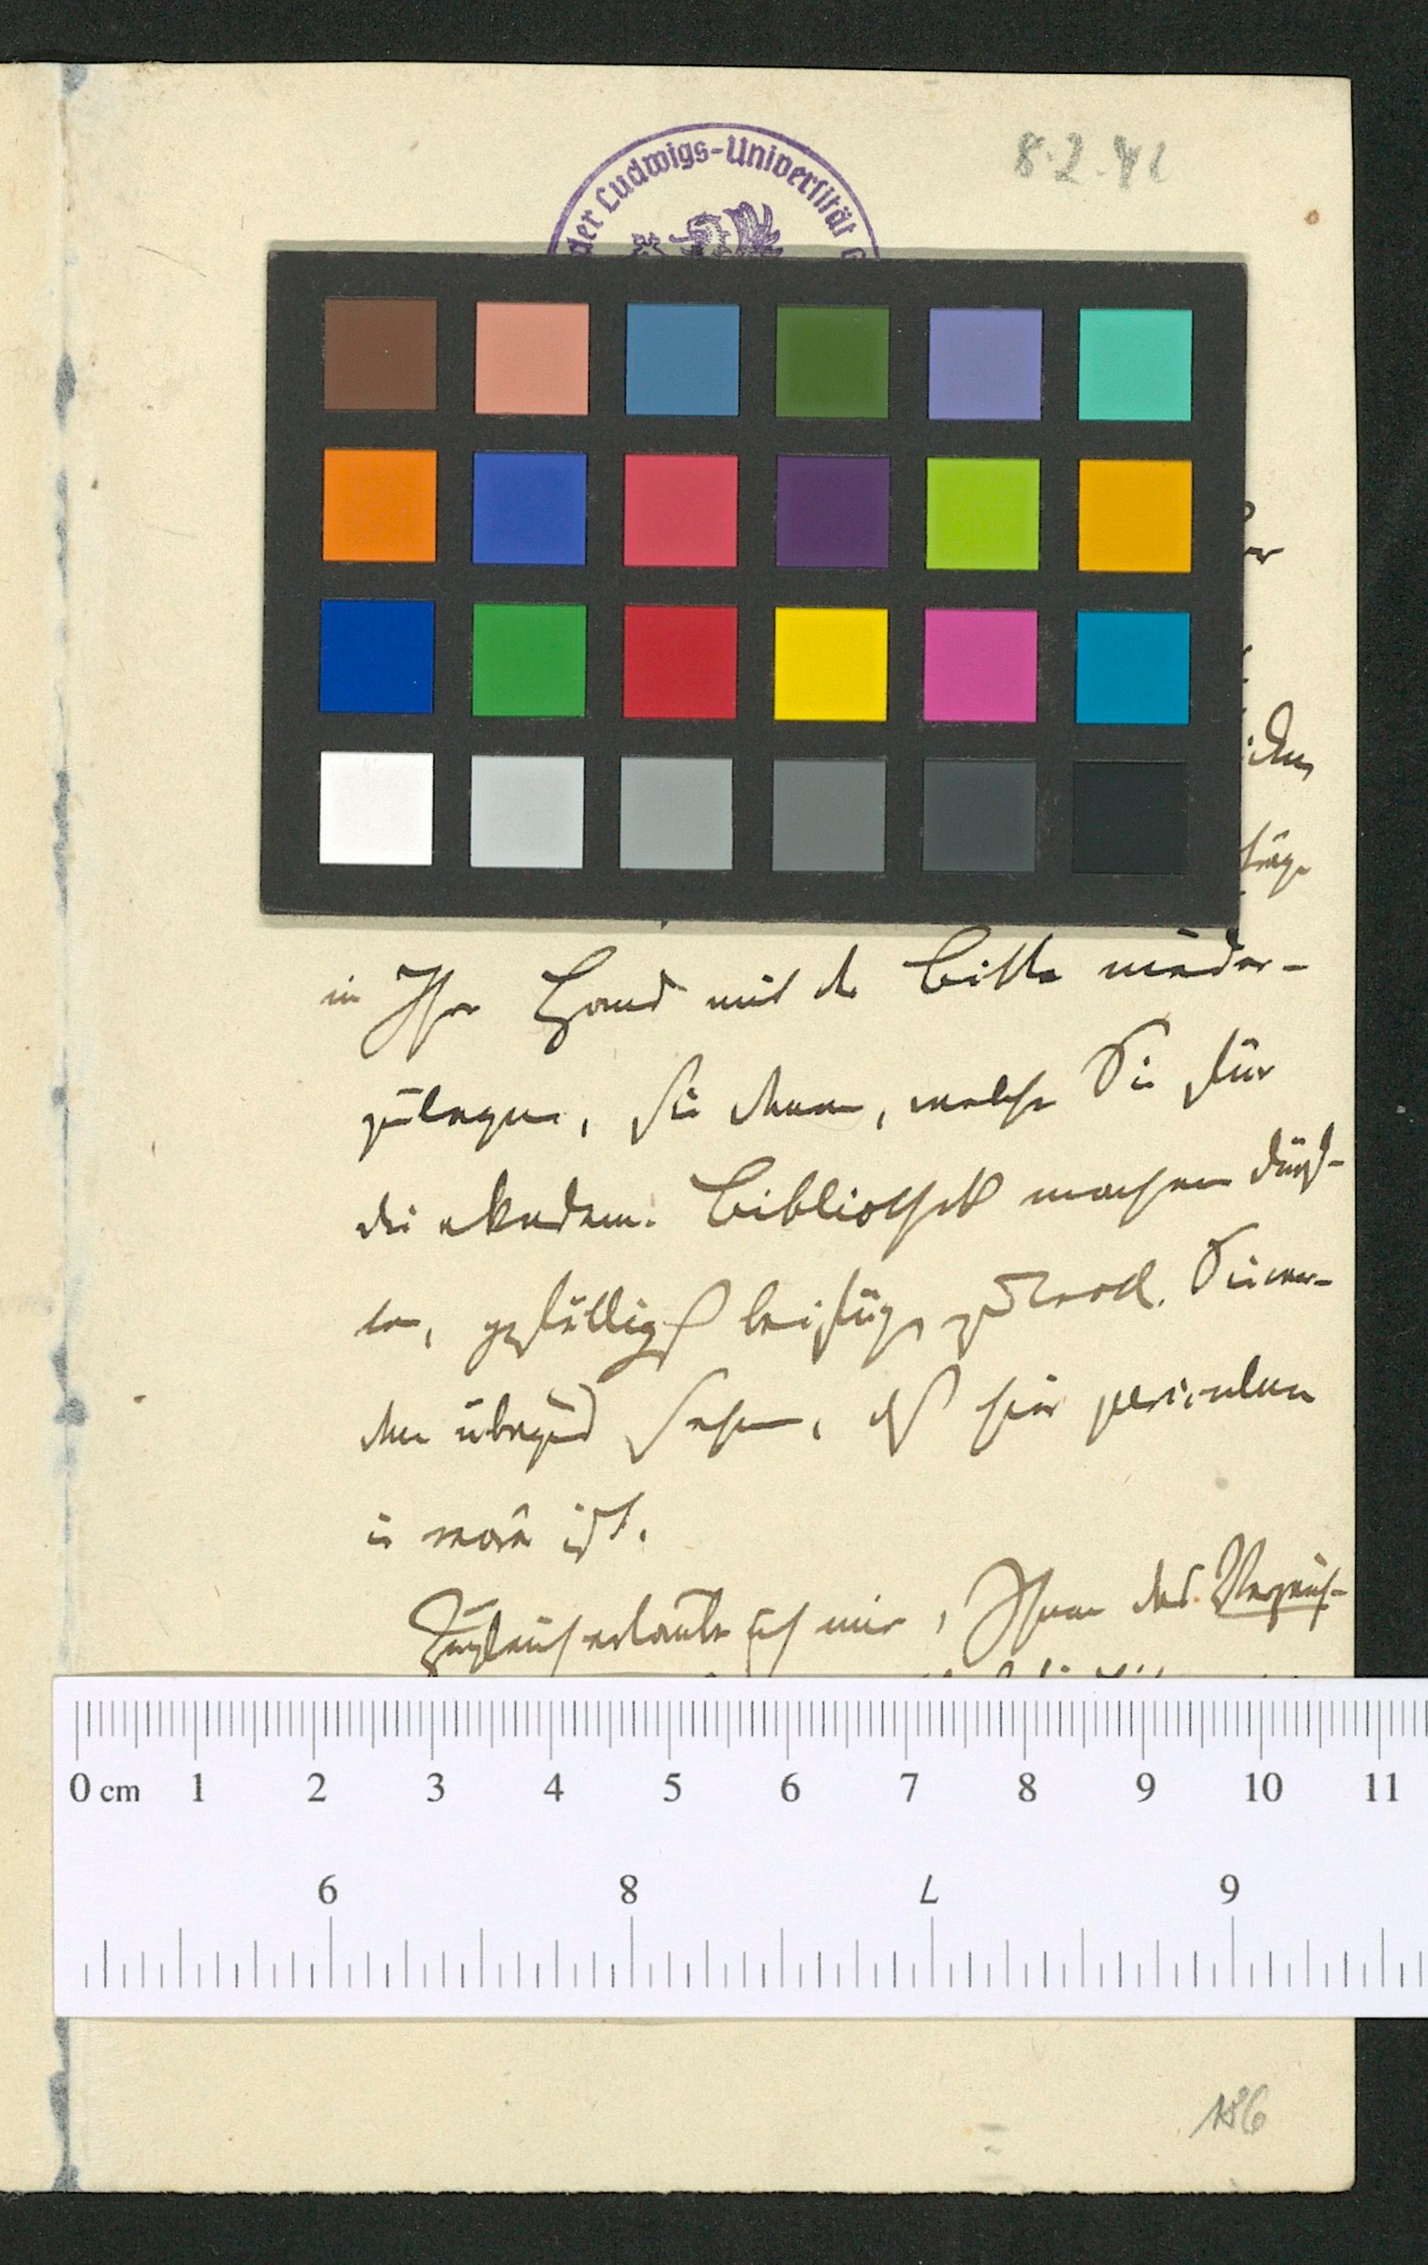 der Ludwigs-Universität G
8.2.41
in Ihre Hand mit der Bitte nieder-
zulegen, sie denen, welche Sie für
die akadem. Bibliothek machen dürf-
ten, gefälligst beifügen zu
den überzeugt sehen, daß hier periculum
in mora ist.
Zugleich erlaube ich mir, Ihnen das Verzeich-
0 cm 1 2 3 4 5 6 7 8 9 10 11
9 8 7 6
186